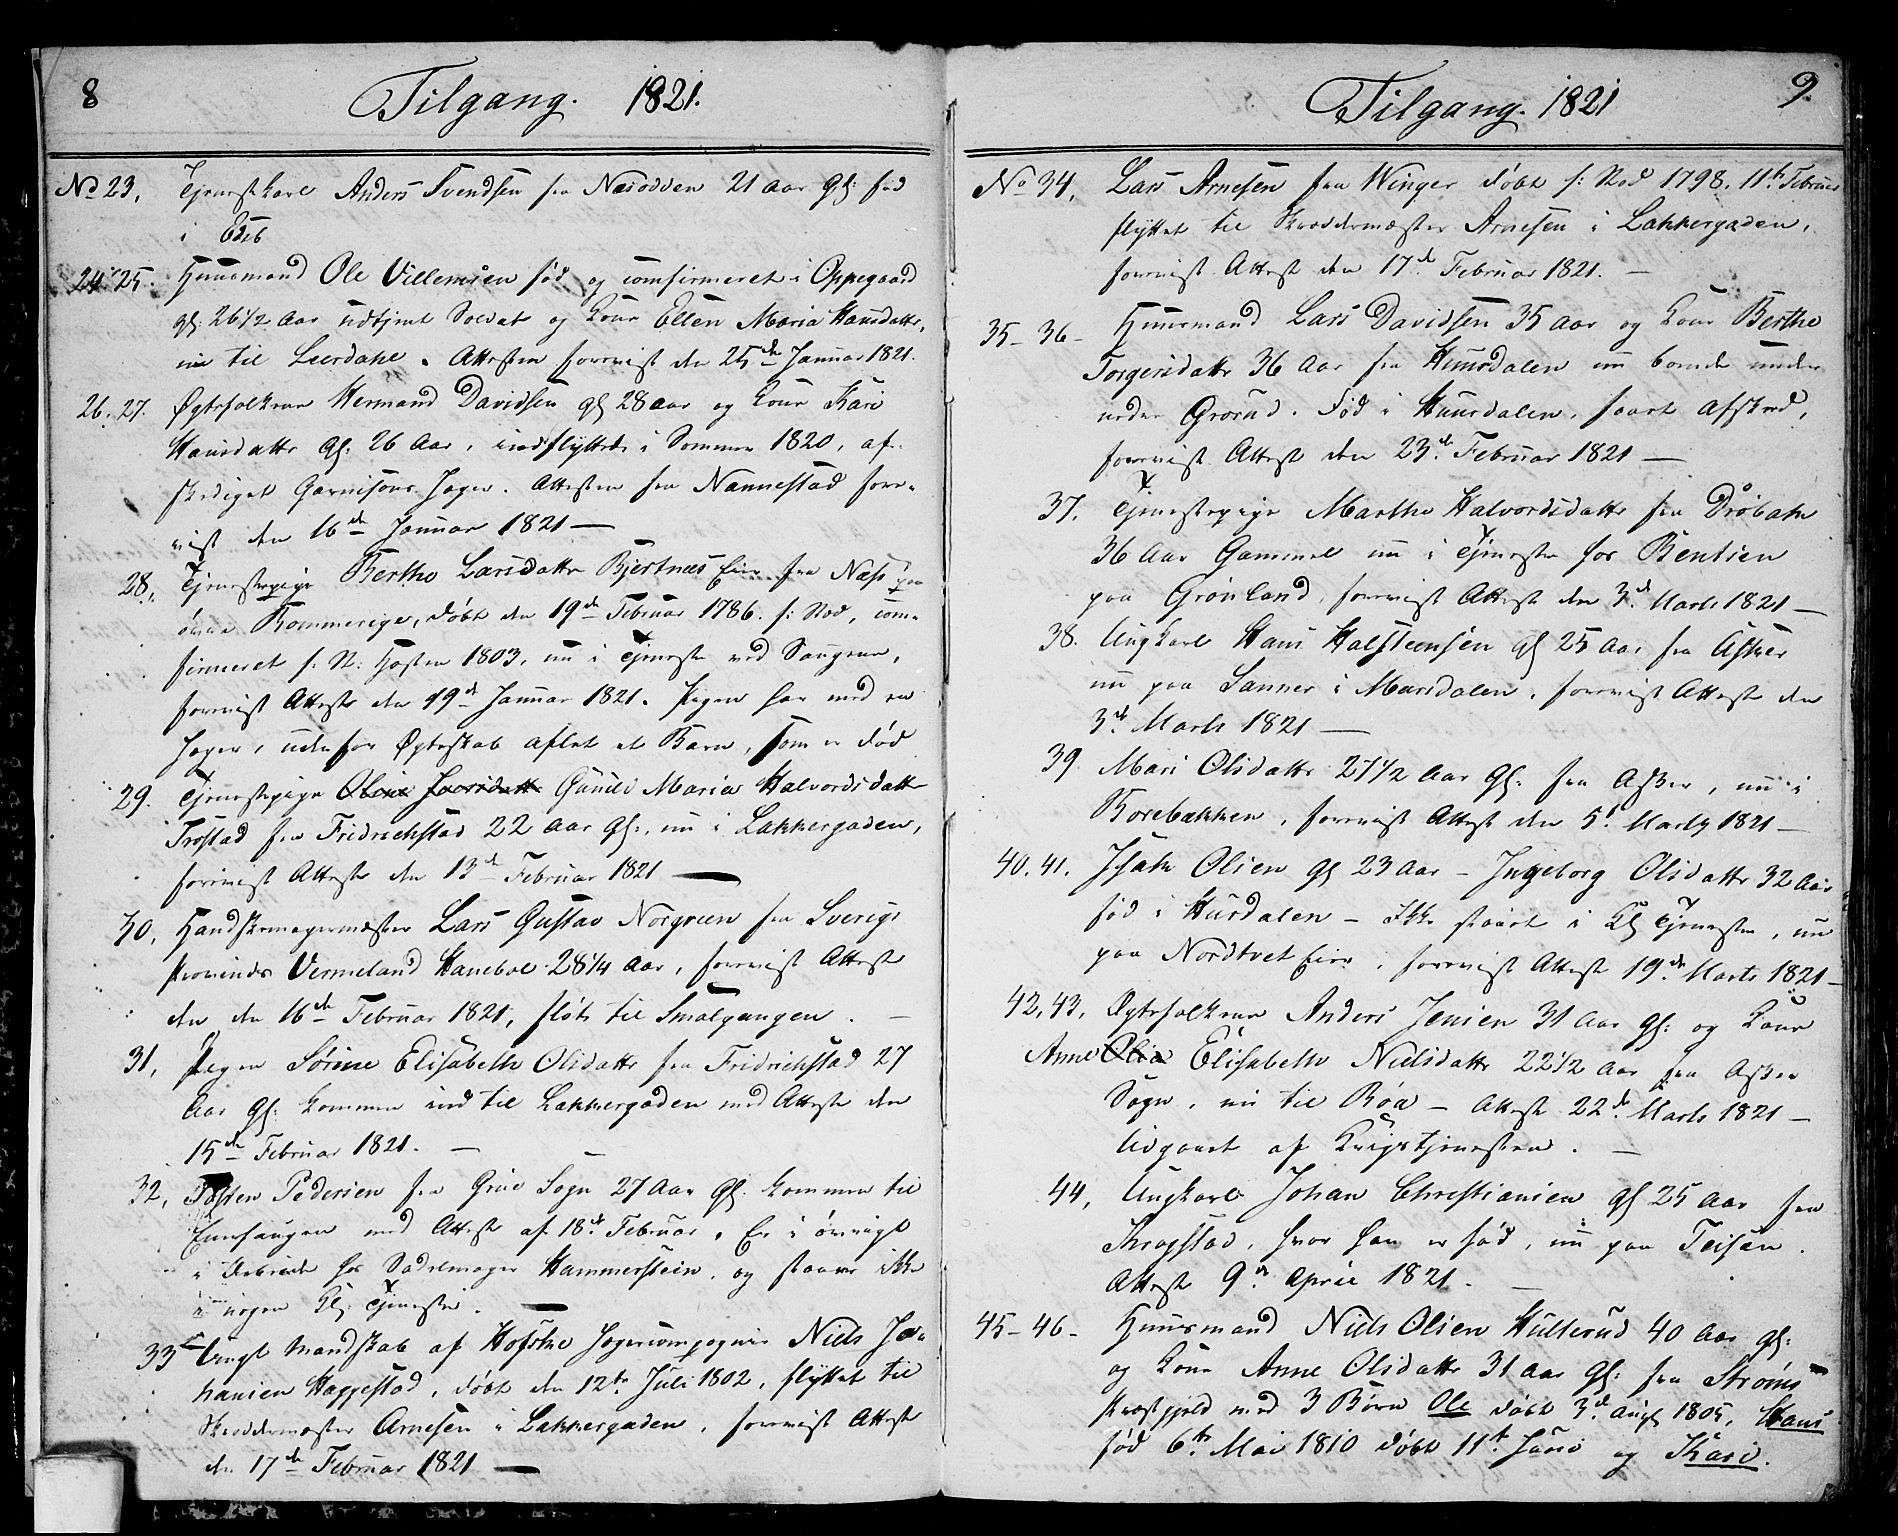 8
Tilgang. 1821.
No 23, Tjenestekarl Anders Svendsen fra Næsodden 21 Aar Gl: født
i
24. 25. Huusmand Ole Villemsen fød og comfirmeret i Oppegaard
gl. 26 1/2 Aar udtjent Soldat og Kone Ellen Maria Hansdattr,
nu til Lierdahl. Attesten foreviist den 25de Januar 1821.
26. 27. Ægtefolkene Hermand Davidsen gl 28 aar og Kone Kari
Hansdattr gl: 26 Aar, indflyttede i Sommer 1820, af-
skediget Garnisons Jæger. Attesten fra Nannestad fore-
viist den 16de Januar 1821 —
28., Tjenestepige Berthe Larsdattr Bjertnæs Eier fra Næss paa
øvre Rommerige, døbt den 19de Februar 1786. s: Sted, com-
firmeret s: St: Høsten 1803, nu i Tjeneste ved Saugene,
foreviist Attest den 19de Januar 1821. Pigen har med en
Jæger, uden for Ægteskab aflet et Barn, som er død
29. Tjenestepige Gunild Maria Halvordsdattr
Trøstad fra Fridrichstad 22 Aar gl:, nu i Lakkergaden,
foreviist Attest den 13de Februar 1821 —
30, Handskemagermester Lars Gustav Norgreen fra Sverigs
Provinds Vermeland Haneboe 28 1/4 Aar, foreviist Attest
den 16de Februar 1821, fløt til Smalgangen. —
31, Pigen Sørine Elisabeth Olsdattr fra Fridrichstad 27
Aar gl: kommen ind til Lakkergaden med Attest den
15de Februar 1821. —
32, Tosten Pedersen fra Grue Sogn 27 Aar gl: kommen til
Enerhaugen med Attest af 18de Februar. Er i øvrigt
i Arbeide hos Sadelmager Hammerstein, og staaer ikke
i nogen Kgl: Tjeneste. —
33 Ungt Mandskab af Hofske Jægercompagnie Niels Jo-
hansen Haggestad, døbt den 12te Juli 1802, flyttet til
Skreddermester Arnesen i Lakkergaden, foreviist Attest
den 17de Februar 1821 —
9.
Tilgang. 1821
No 34, Lars Arnesen fra Winger døbt s: Sted 1798. 11te Februar
flyttet til Skreddermester Arnesen i Lakkergaden,
foreviist Attest den 17de Februar 1821. —
35 - 36 - Huusmand Lars Davidsen 35 Aar og Kone Berthe
Torgersdattr 36 Aar fra Huursdalen nu boende under
nedre Grorud. Fød i Huursdalen, faaet Afsked,
foreviist Attest den 23de Februar 1821 —
37. Tjenestepige Marthe Halvordsdattr fra Drøbak
36 Aar Gammel nu i Tjeneste hos Bentsen
paa Grønland, foreviist Attest den 3de Marts 1821 —
38. Ungkarl Hans Halsteensen gl 25 Aar fra Asker
nu paa Sanner i Marsdalen, foreviist Attest den
3de Marts 1821 —
39 Mari Olsdattr 27 1/2 Aar gl: fra Asker, nu i
Rosebakken, foreviist Attest den 5te Marts 1821 —
40. 41. Isak Olsen gl 23 Aar - Ingeborg Olsdattr 32 Aar
fød i Hurdalen - Ikke staaet i Kgl Tjeneste, nu
paa Nordtvet Eier, foreviist Attest 19de Marts 1821 —
42, 43, Ægtefolkene Anders Jensen 31 Aar gl: og Kone
Anne Olia Elisabeth Nielsdattr 22 1/2 Aar fra Asker
Sogn, nu til Røa - Attest 22de Marts 1821 —
Udgaaet af Krigstjenesten. —
44, Ungkarl Johan Christiansen gl 25 Aar fra
Kragstad, hvor han er fød, nu paa Teisen.
Attest 9de April 1821. —
45 - 46 - Huusmand Niels Olsen Hulterud 40 Aar gl:
og Kone Anne Olsdattr 31 Aar gl: fra Strøms
Præstgjeld med 3 Børn Ole døbt 3de Augt 1805, Hans
fød 6te Mai 1810 døbt 11te Juni og Kari.